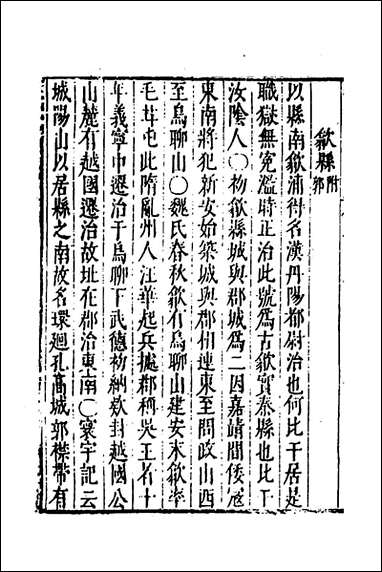 歙縣附郭
以縣南歙浦得名漢丹陽都尉治也何比干居是
職獄無寃濫時正治此號為古歙實秦縣也比干
汝陰人〇初歙縣城與郡城為二因嘉靖間倭冦
東南將犯新安始築城與郡州連東至問政山西
至烏聊山〇魏氏春秋歙有烏聊山建安末歙率
毛甘屯此隋亂州人汪華起兵據郡稱吳王者十
年義寧中遷治于烏聊下武德初納欵封越國公
山麓有越國遷治故址在郡治東南〇寰宇記云
城陽山以居縣之南故名環迴孔高城郭襟帶有